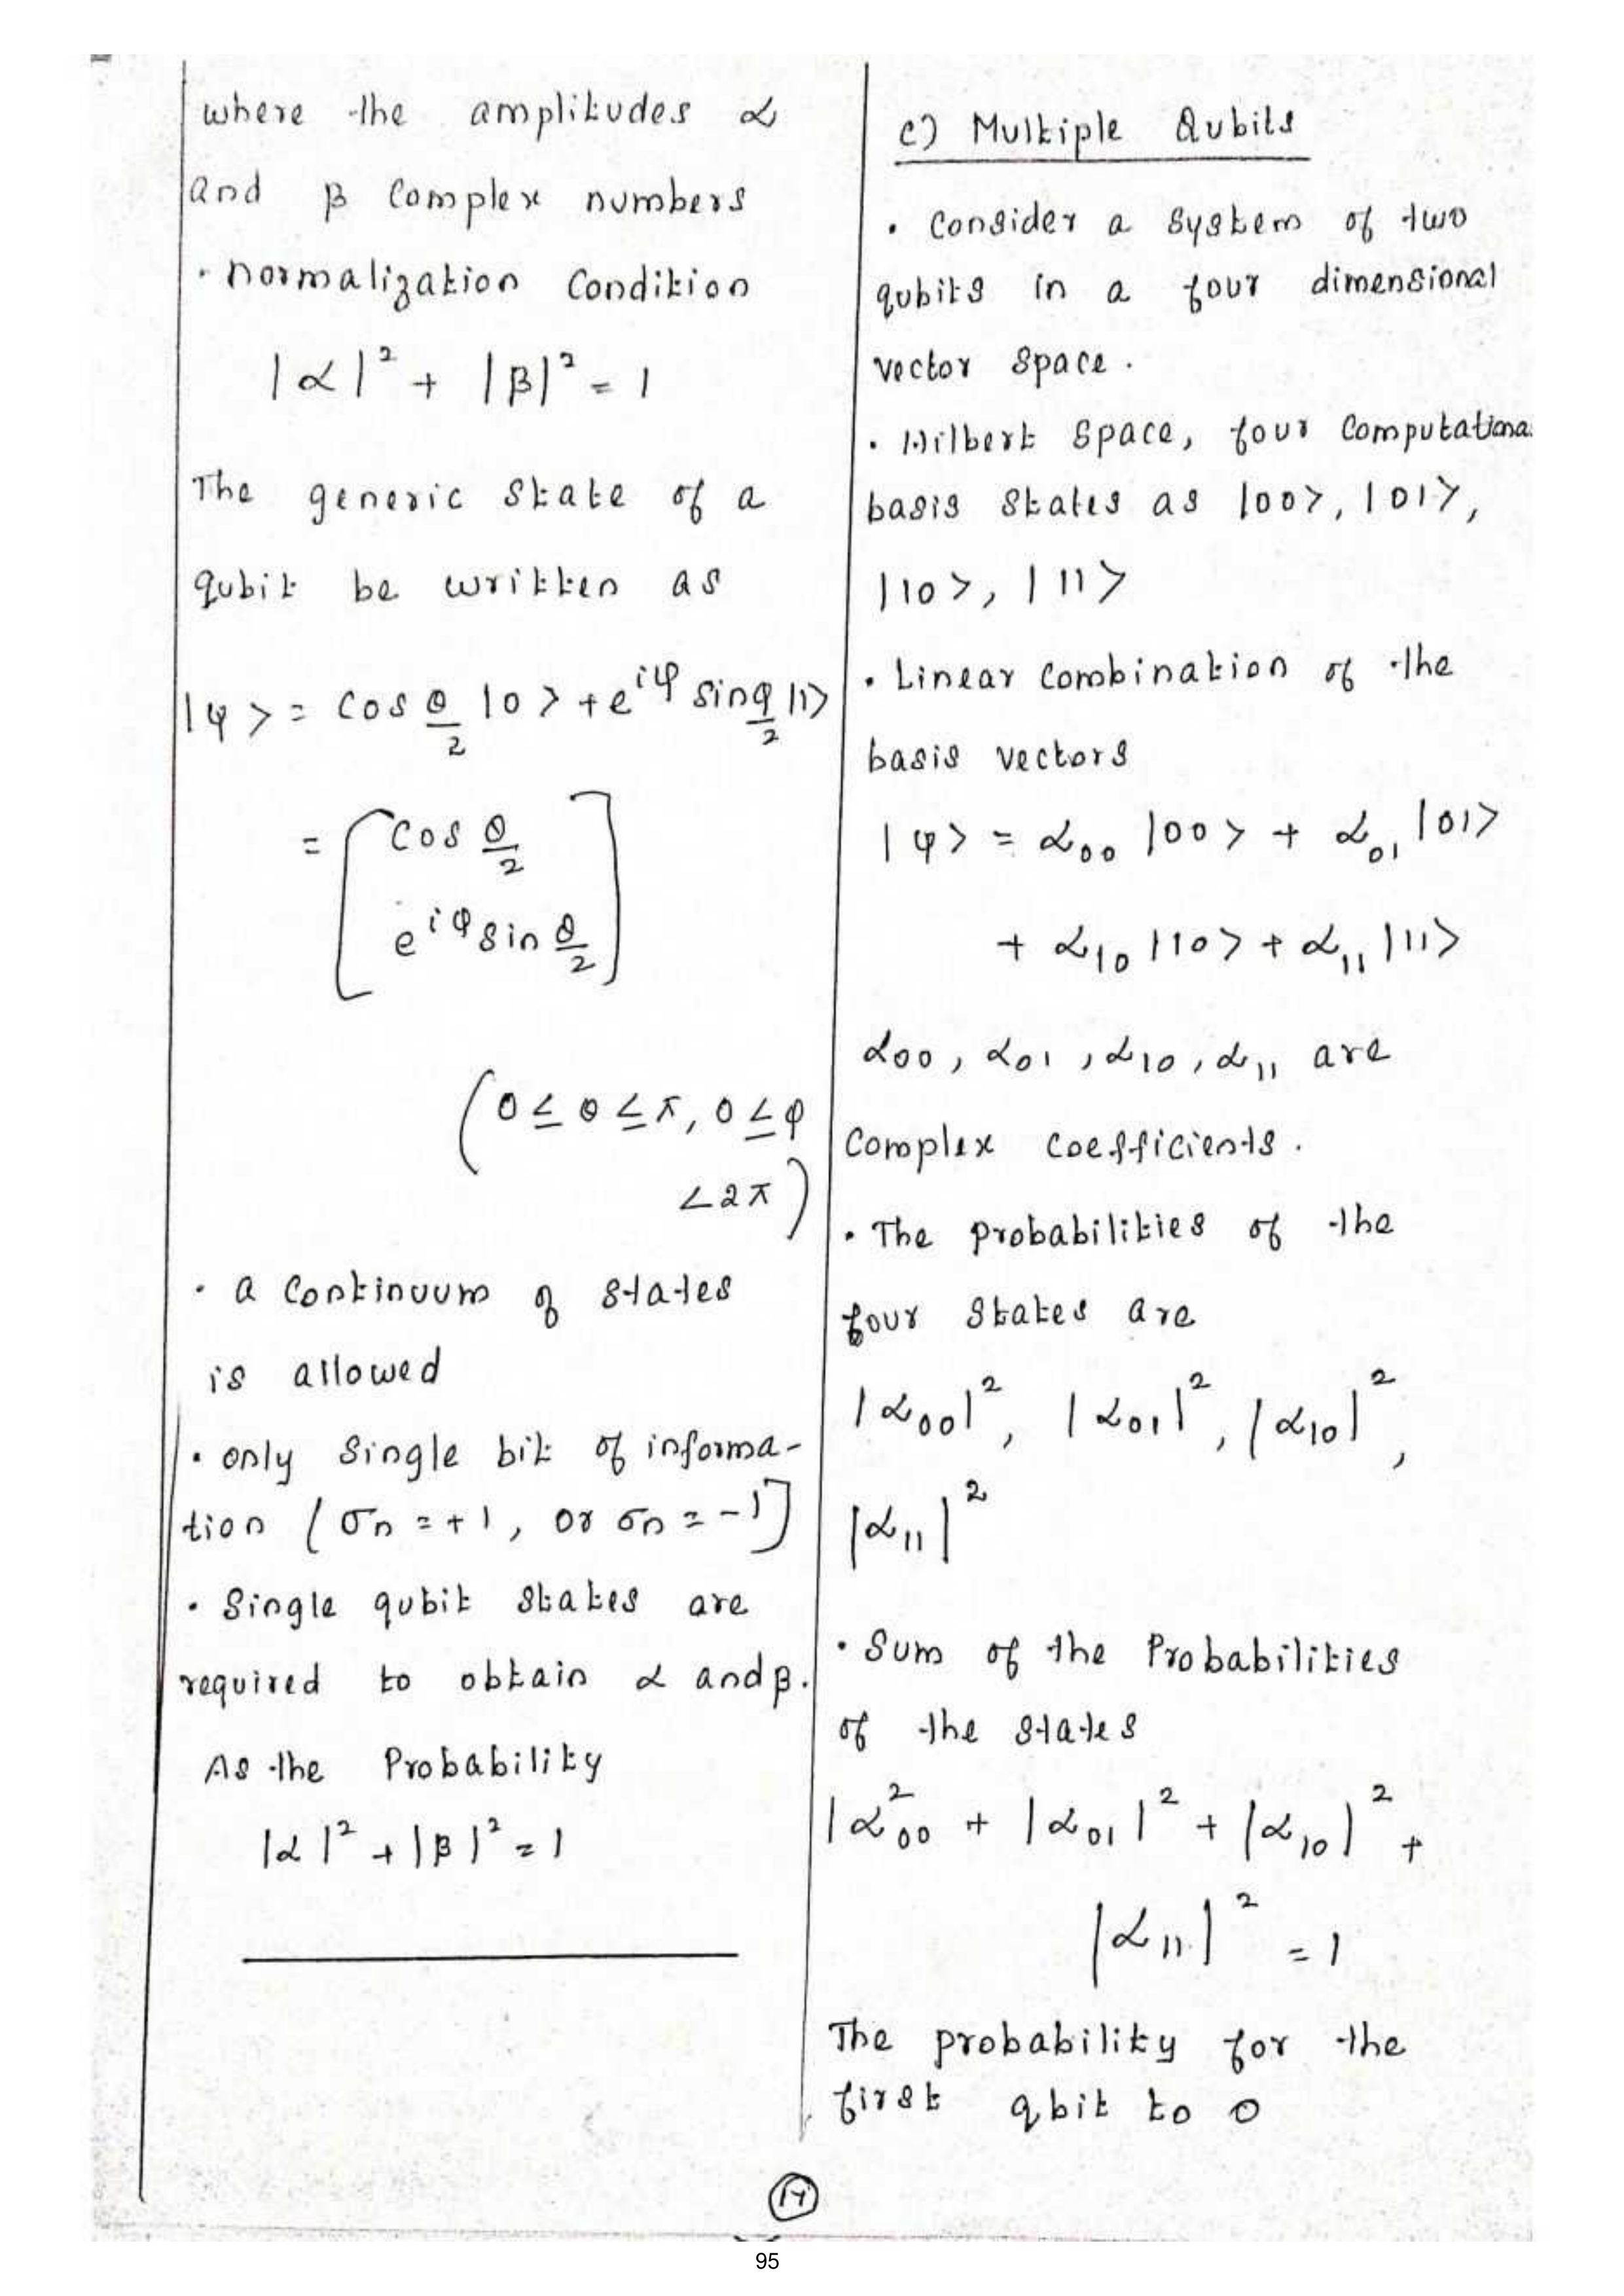 where the amplitudes α
and β complex numbers
· normalization condition
|α|² + |β|² = 1
The generic state of a
qubit be written as
|ψ> = cos θ/2 |0> + e^{iφ} sin θ/2 |1>
= [cos θ/2
e^{iφ} sin θ/2]
(0 ≤ θ ≤ π, 0 ≤ φ
< 2π)
· a continuum of states
is allowed
· only single bit of informa-
tion [σn = +1, or σn = -1]
· Single qubit states are
required to obtain α and β.
As the Probability
|α|² + |β|² = 1
c) Multiple Qubits
· Consider a system of two
qubits in a four dimensional
vector space.
· Hilbert space, four computationa
basis states as |00>, |01>,
|10>, |11>
· Linear combination of the
basis vectors
|ψ> = α₀₀ |00> + α₀₁ |01>
+ α₁₀ |10> + α₁₁ |11>
α₀₀, α₀₁, α₁₀, α₁₁ are
complex coefficients.
· The probabilities of the
four states are
|α₀₀|², |α₀₁|², |α₁₀|²,
|α₁₁|²
· Sum of the Probabilities
of the states
|α²₀₀ + |α₀₁|² + |α₁₀|² +
|α₁₁|² = 1
The probability for the
first qbit to 0
95